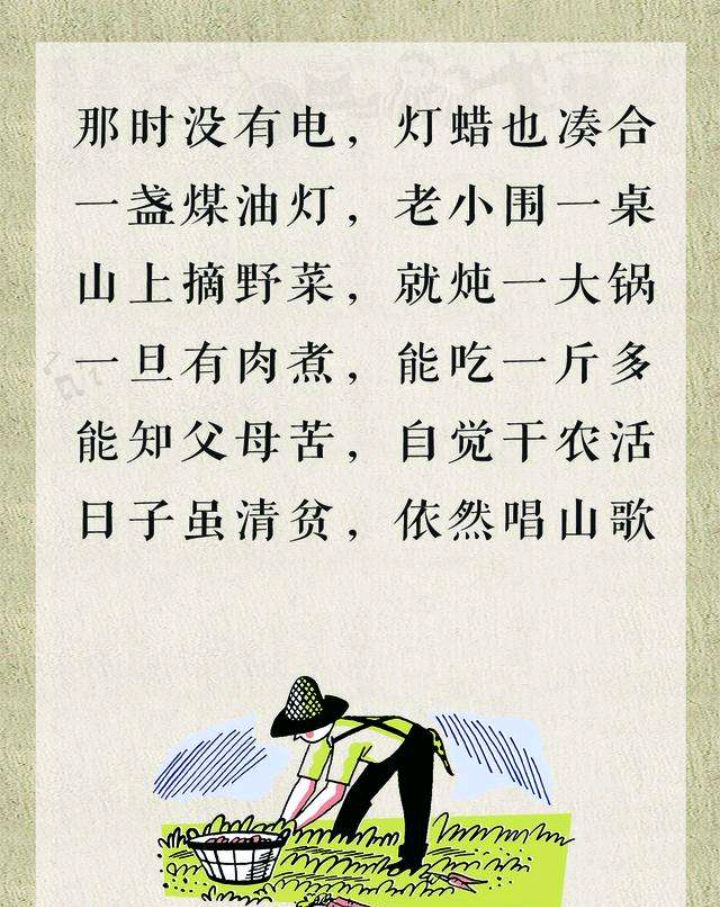 那时没有电，灯蜡也凑合
一盏煤油灯，老小围一桌
山上摘野菜，就炖一大锅
一旦有肉煮，能吃一斤多
能知父母苦，自觉干农活
日子虽清贫，依然唱山歌